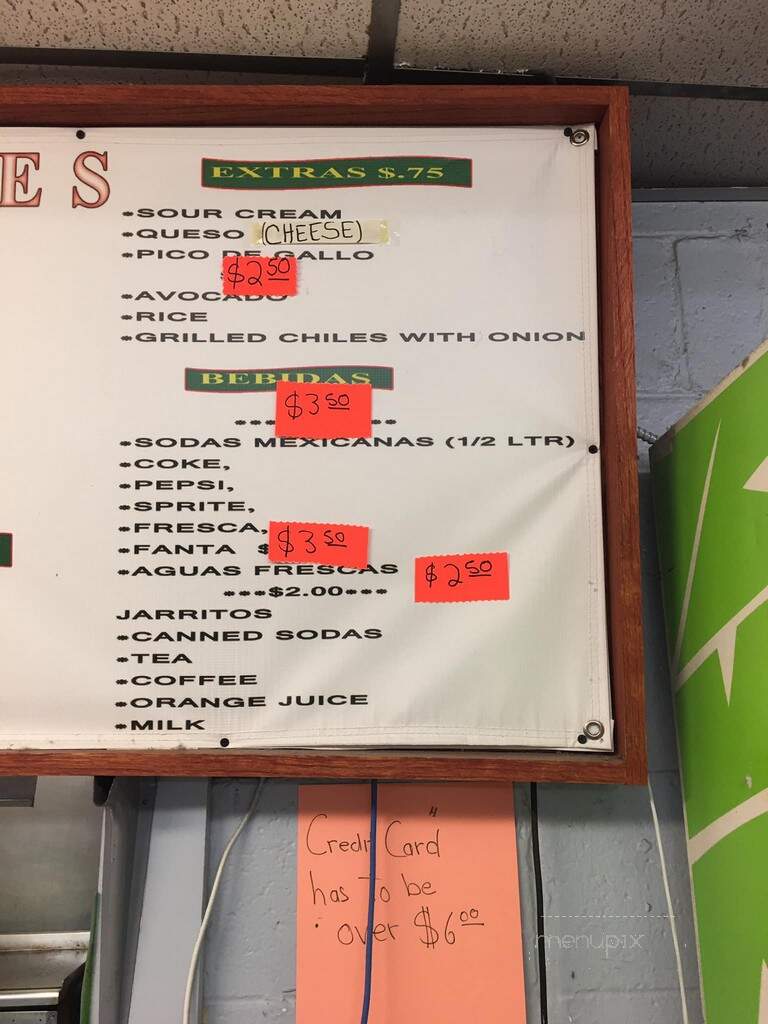 ES
EXTRAS $.75
*SOUR CREAM
*QUESO (CHEESE)
*PICO DE GALLO
$2.50
*AVOCADO
*RICE
*GRILLED CHILES WITH ONION
BEBIDAS
$3.50
*SODAS MEXICANAS (1/2 LTR)
*COKE,
*PEPSI,
*SPRITE,
*FRESCA,
*FANTA $ $3.50
*AGUAS FRESCAS $2.50
---$2.00---
JARRITOS
*CANNED SODAS
*TEA
*COFFEE
*ORANGE JUICE
*MILK
Credit Card
has to be
over $6.00
menupix